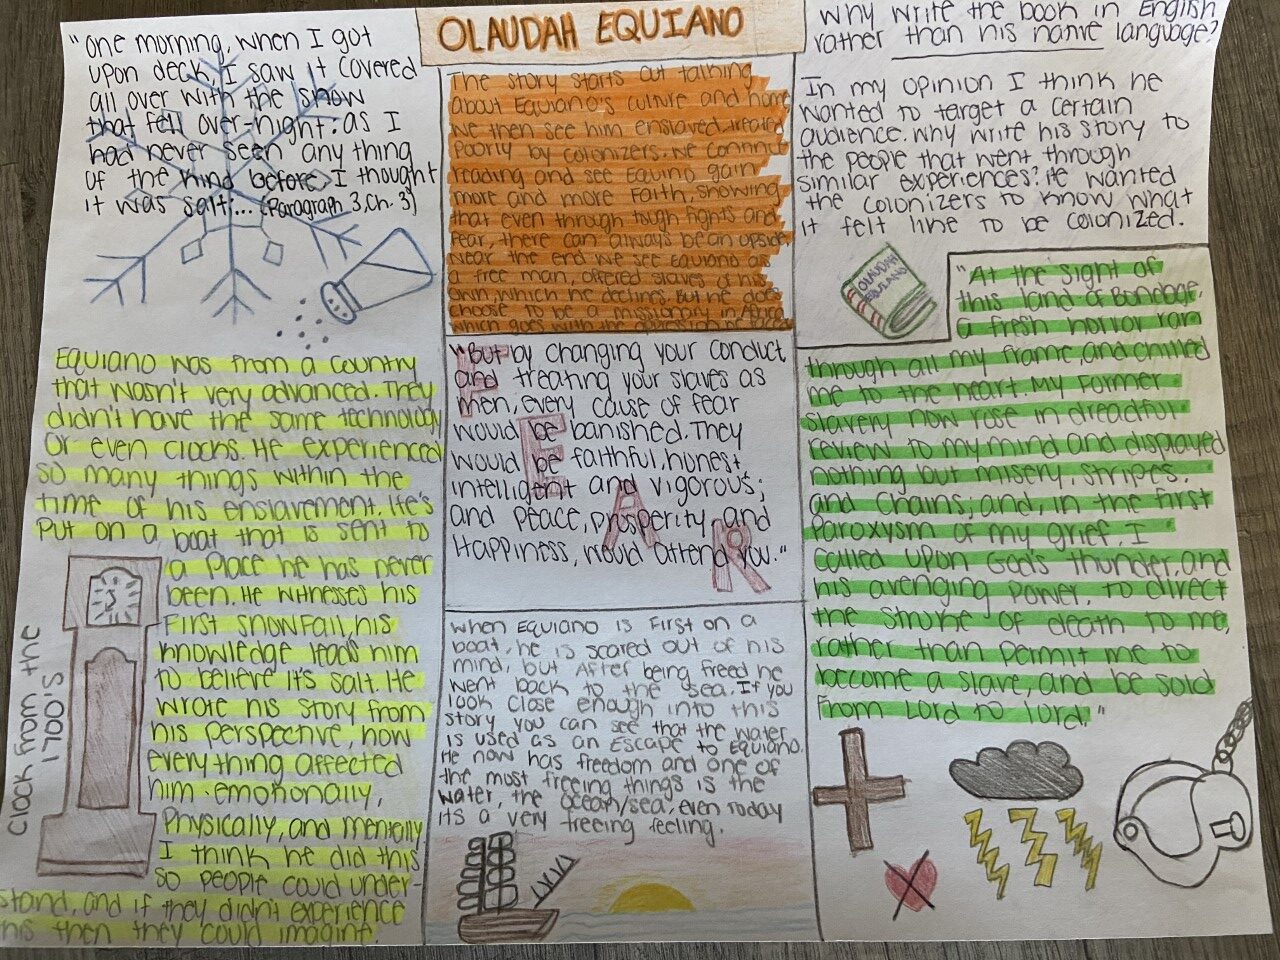 "One morning, when I got
upon deck, I saw it covered
all over with the snow
that fell over-night: as I
had never seen any thing
of the kind before, I thought
it was salt;... (Paragraph 3, Ch. 3)
Equiano was from a country
that wasn't very advanced. They
didn't have the same technology
or even clocks. He experienced
so many things within the
time of his enslavement. He's
put on a boat that is sent to
a place he has never
been. He witnesses his
first snowfall, his
knowledge leads him
to believe it's salt. He
wrote his story from
his perspective, how
everything affected
him emotionally,
Physically, and mentally
I think he did this
so people could under-
stand, and if they didn't experience
this then they could imagine.
Clock from the
1700's
OLAUDAH EQUIANO
The story starts out talking
about Equiano's culture and home
we then see him enslaved, treated
poorly by colonizers. We continue
reading and see Equino gain
more and more Faith, showing
that even through tough fights and
fear, there can always be an upside
Near the end we see Equiano as
a free man, offered slaves of his
own, which he declines. But he does
choose to be a missionary in Africa
which goes with the
"But by changing your conduct
and treating your slaves as
men, every cause of fear
would be banished. They
would be faithful, honest,
intelligent and vigorous;
and peace, prosperity, and
Happiness, would attend you."
FEAR
When Equiano is first on a
boat, he is scared out of his
mind, but After being freed he
went back to the sea. If you
look close enough into this
story you can see that the water
is used as an Escape to Equiano.
He now has freedom and one of
the most freeing things is the
water, the ocean/sea, even today
its a very freeing feeling.
Why write the book in English
rather than his native language?
In my opinion I think he
wanted to target a certain
audience. Why write his story to
the people that went through
similar experiences? He wanted
the colonizers to know what
it felt like to be colonized.
OLAUDAH
EQUIANO
"At the sight of
this land of Bondage,
a fresh horror ran
through all my frame, and chilled
me to the heart. My Former
slavery now rose in dreadful
review to my mind and displayed
nothing but misery, stripes,
and chains; and, in the first
Paroxysm of my grief, I
called upon God's thunder, and
his avenging power, to direct
the stroke of death to me,
rather than permit me to
become a slave, and be sold
From Lord to lord."